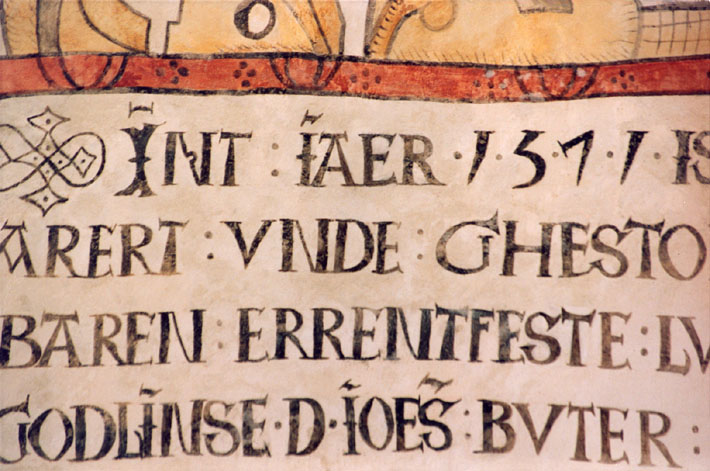 ĪNT : ĪAER · 1 · 5 · 7 · 1 · IS
ARERT : VNDE : GHESTO
BAREN : ERRENTFESTE : LV
GODLĪNSE · D · ĪOES̃ : BVTER :